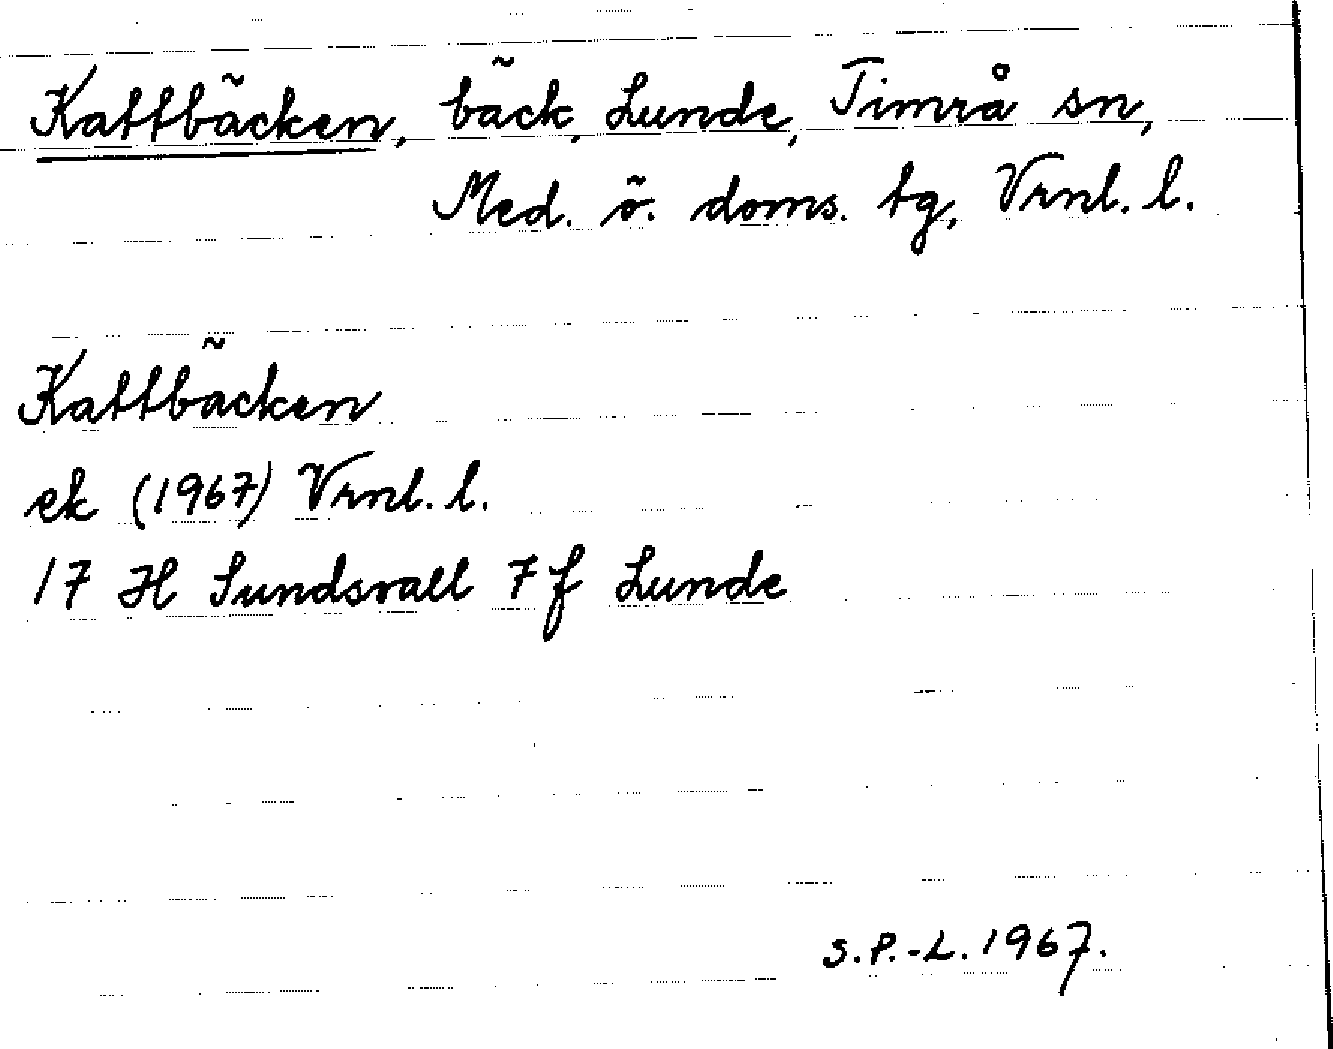 Kattbäcken, bäck, Lunde, Timrå sn,
Med. ö. doms. tg, Vrnl. l.
Kattbäcken
ek (1967) Vrnl. l.
17 H Sundsvall 7 f Lunde
S.P.-L. 1967.